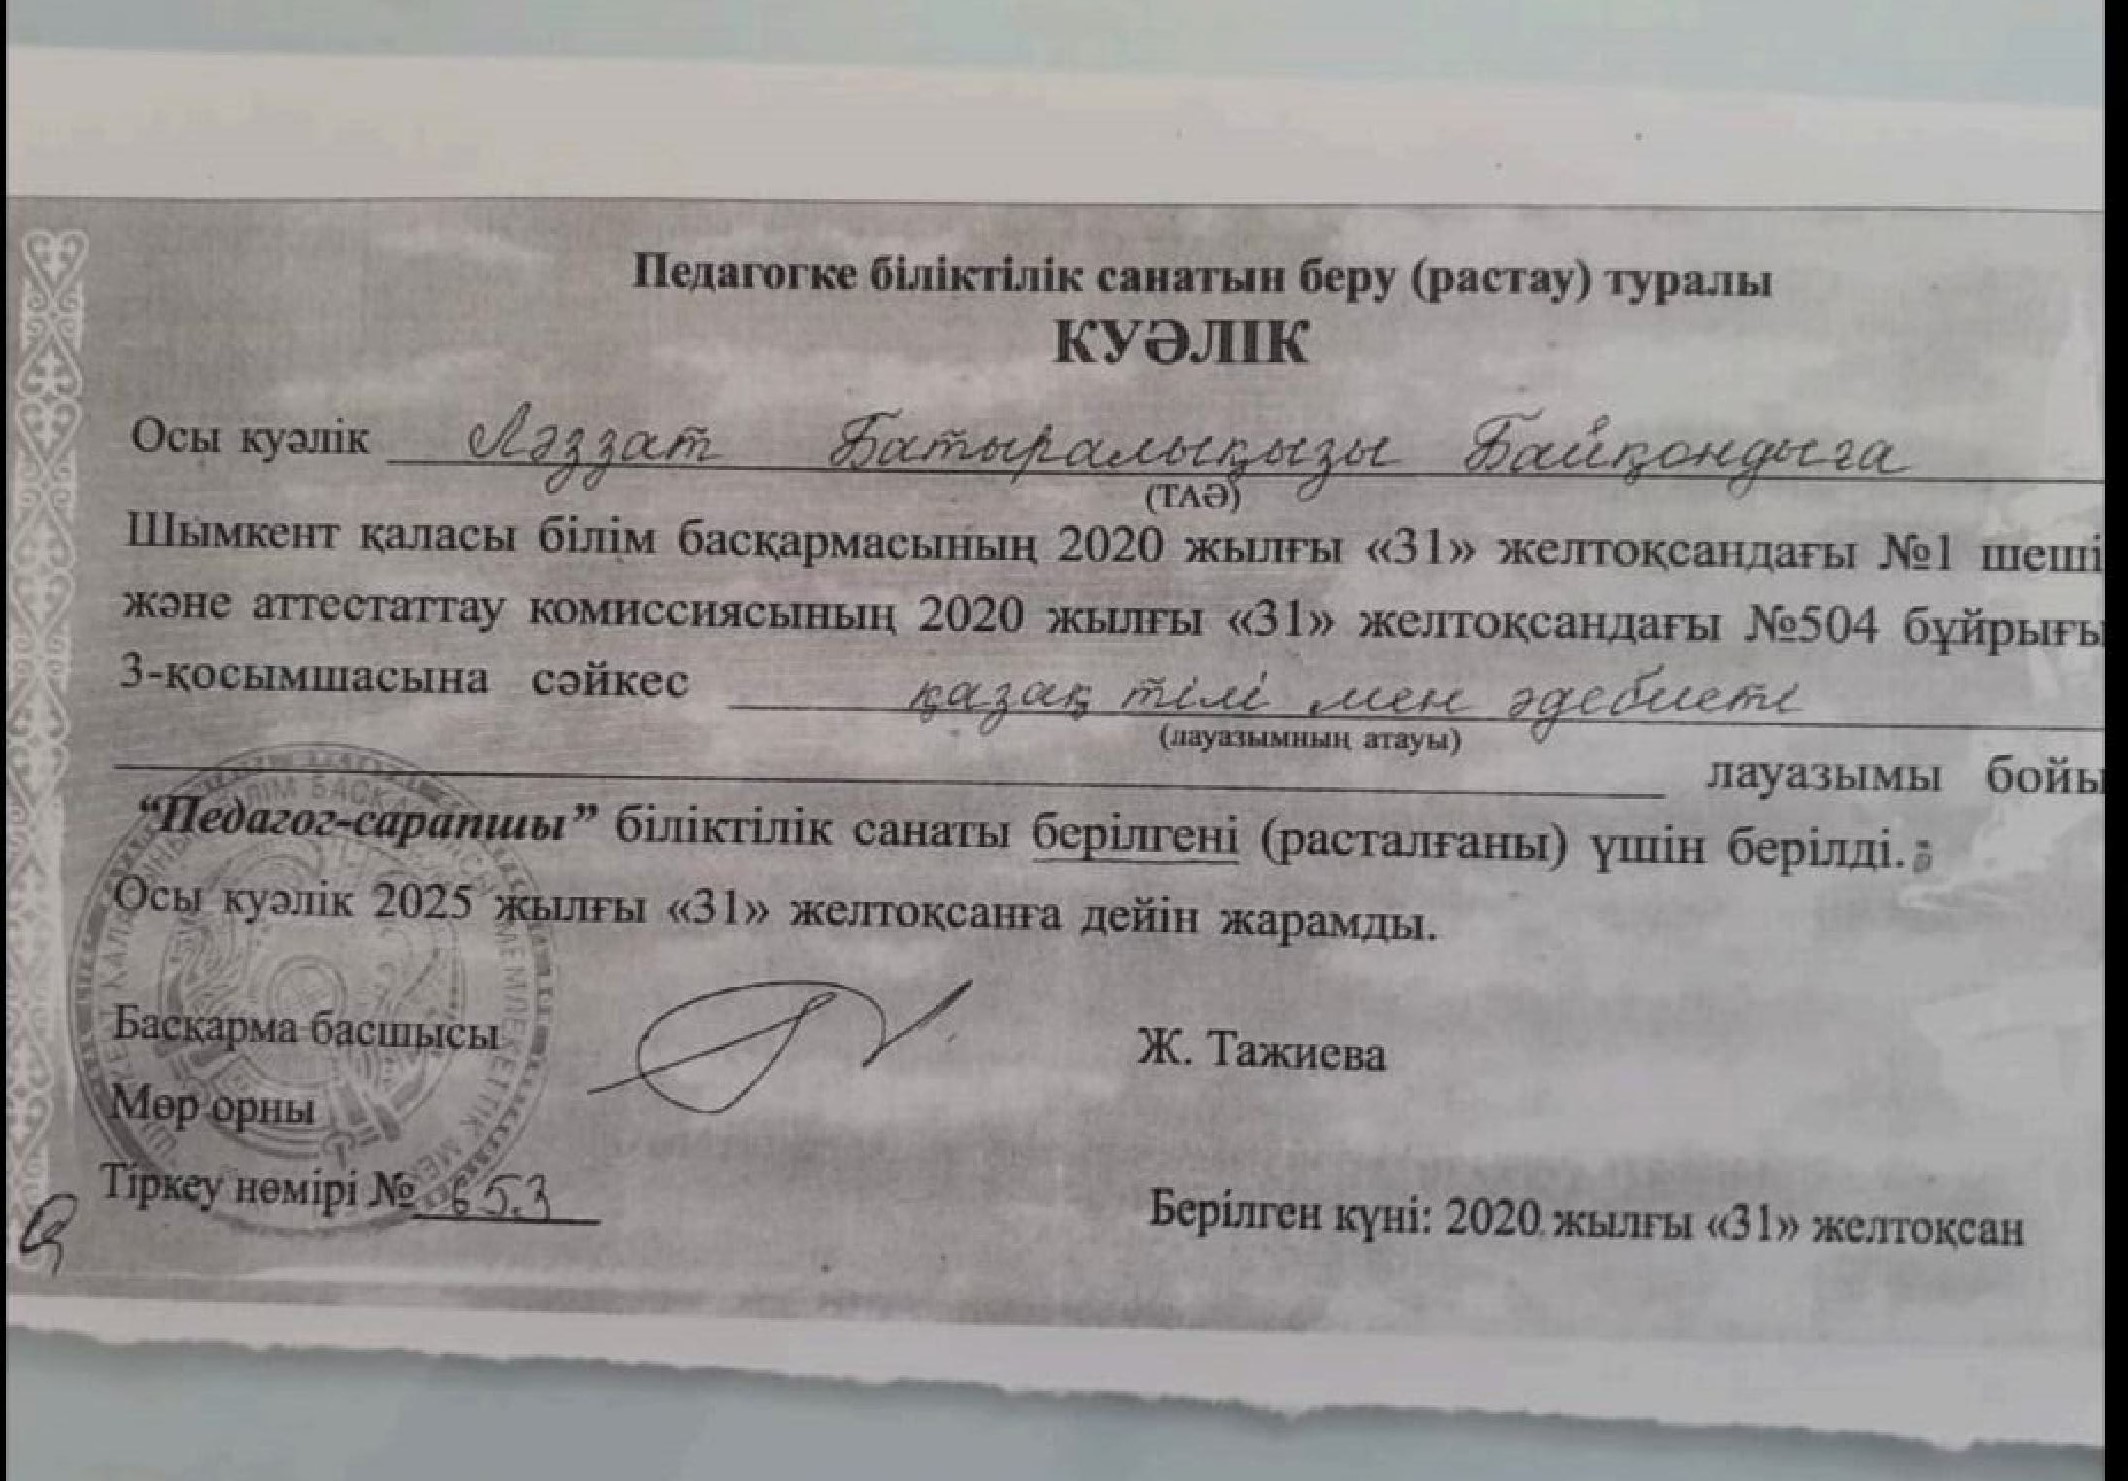 Педагогке біліктілік санатын беру (растау) туралы
КУӘЛІК
Осы куәлік Ләззат Батыралықызы Байқондыға
(ТАӘ)
Шымкент қаласы білім басқармасының 2020 жылғы «31» желтоқсандағы №1 шеші
және аттестаттау комиссиясының 2020 жылғы «31» желтоқсандағы №504 бұйрығы
3-қосымшасына сәйкес қазақ тілі мен әдебиеті
(лауазымның атауы)
лауазымы бойы
“Педагог-сарапшы” біліктілік санаты берілгені (расталғаны) үшін берілді.
Осы куәлік 2025 жылғы «31» желтоқсанға дейін жарамды.
Басқарма басшысы Ж. Тажиева
Мөр орны
Тіркеу нөмірі № 653 Берілген күні: 2020 жылғы «31» желтоқсан